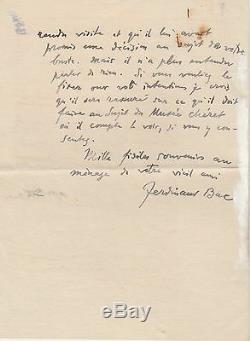 rendu visite et qu'il lui avait
promis une décision au sujet de votre
buste. Mais il n'a plus entendu
parler de rien. Si vous vouliez le
fixer sur vos intentions je crois
qu'il sera rassuré sur ce qu'il doit
faire au sujet du Musée Chéret
où il compte le voir, si vous y con-
sentez.
Mille fidèles souvenirs au
ménage de votre vieil ami
Ferdinand Bac